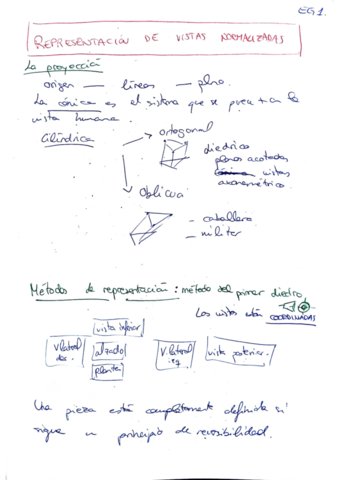 EG1.
REPRESENTACIÓN DE VISTAS NORMALIZADAS
La proyección
origen — líneas — plano.
La cónica es el sistema que se parece + a la
vista humana.
Cilíndrica
ortogonal
diedrico
planos acotados
vistas
axonométrico
Oblicua
- caballera
- militar
Métodos de representación: método del primer diedro
Las vistas están COORDINADAS
vista inferior
V.lateral der.
alzado
V.lateral izq
vista posterior.
planta
Una pieza está completamente definida si
sigue un principio de reversibilidad.